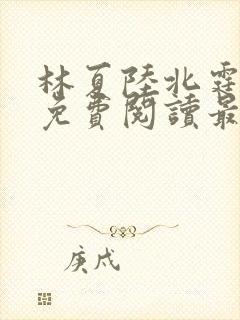 林夏陸北霆
免費閱讀最
庚戌